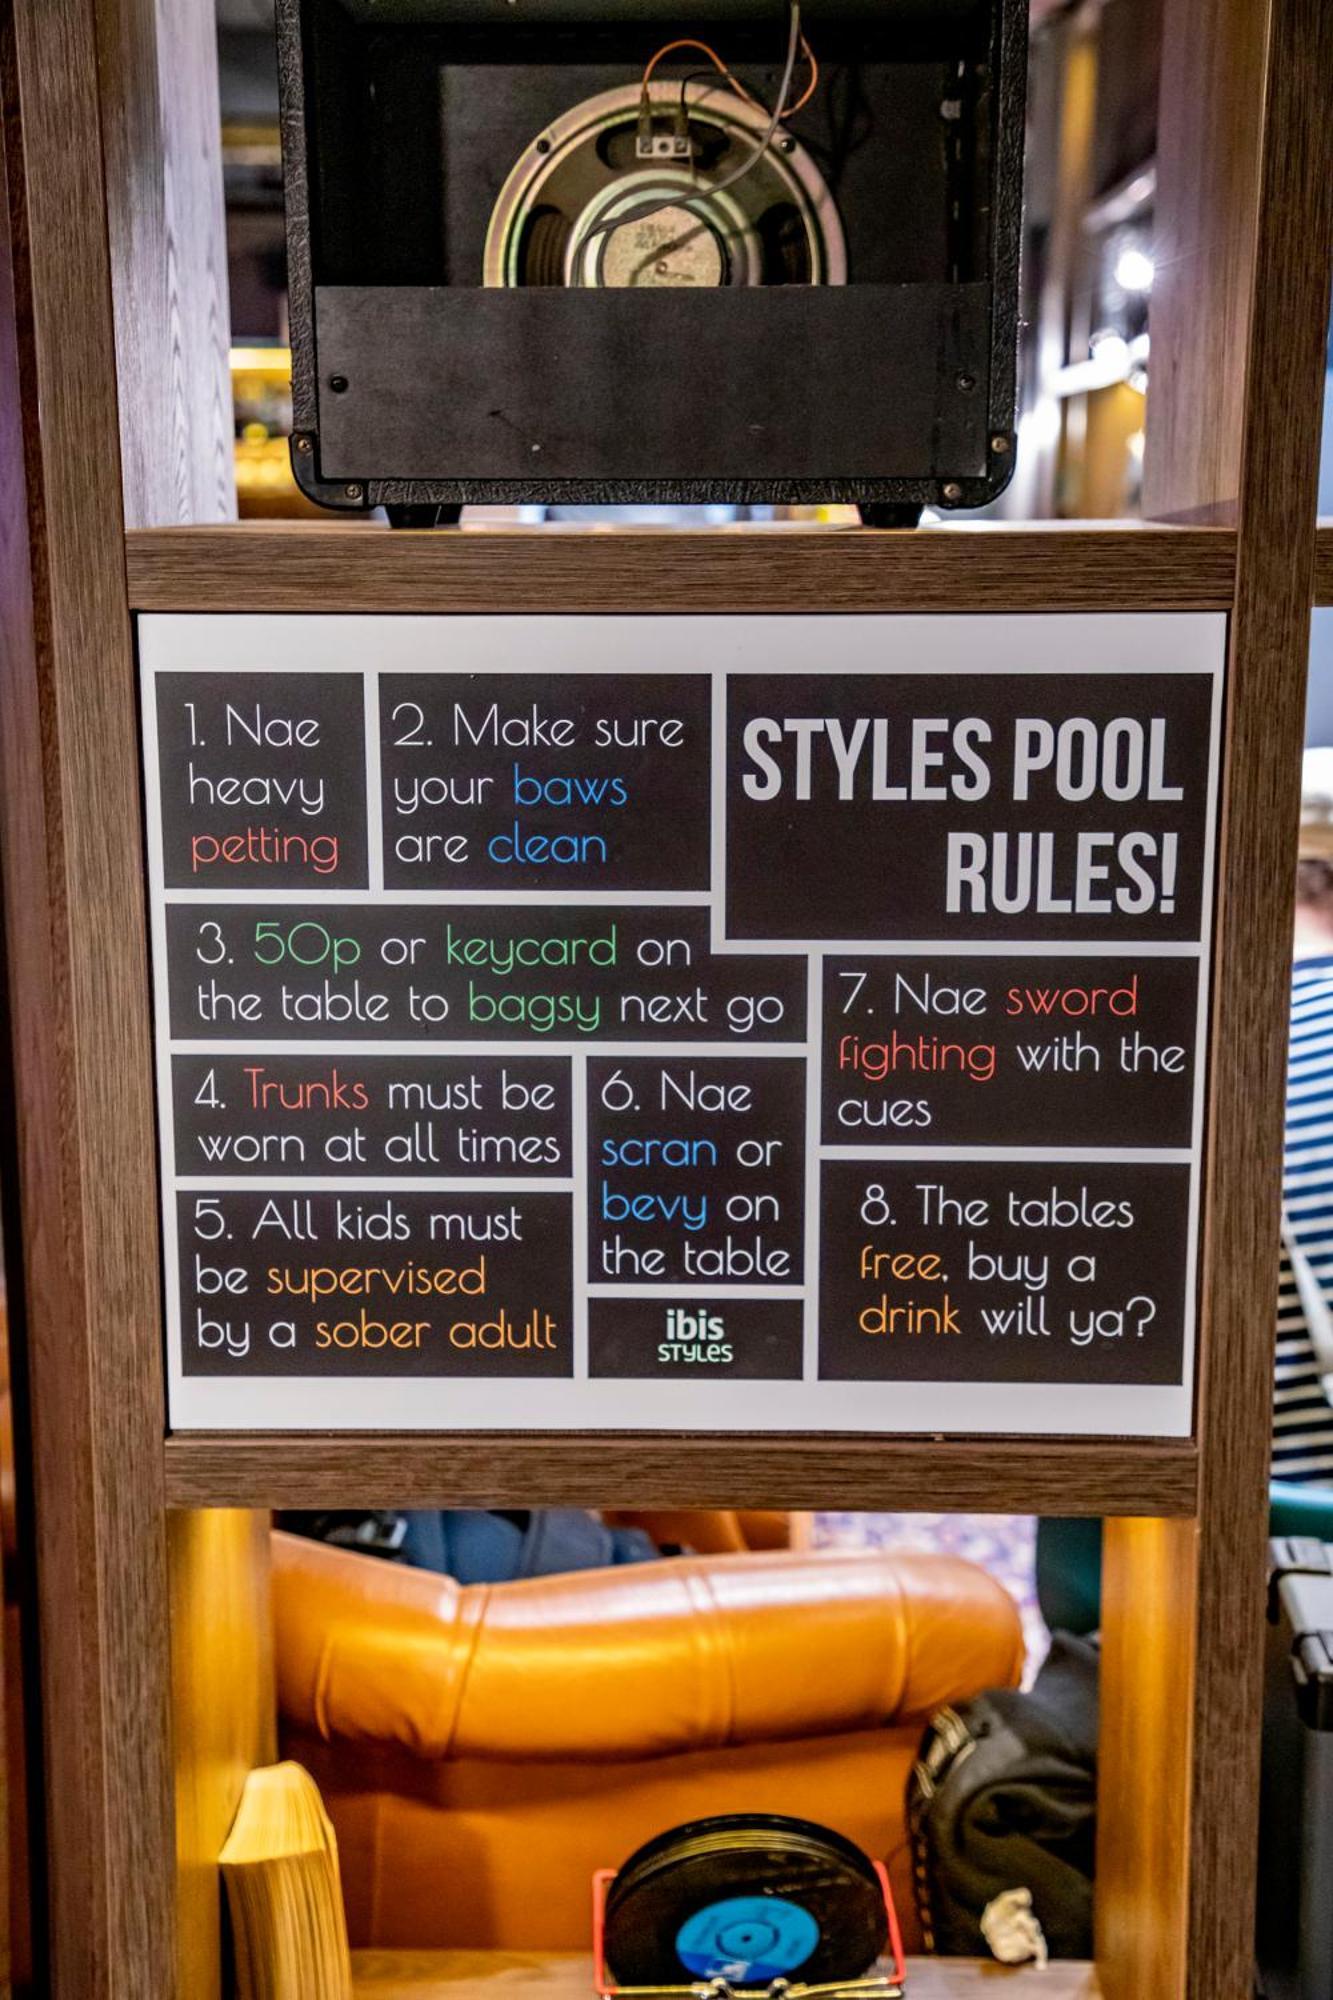 STYLES POOL
RULES!
1. Nae
heavy
petting
2. Make sure
your baws
are clean
3. 50p or keycard on
the table to bagsy next go
4. Trunks must be
worn at all times
5. All kids must
be supervised
by a sober adult
6. Nae
scran or
bevy on
the table
7. Nae sword
fighting with the
cues
8. The tables
free, buy a
drink will ya?
ibis
STYLES